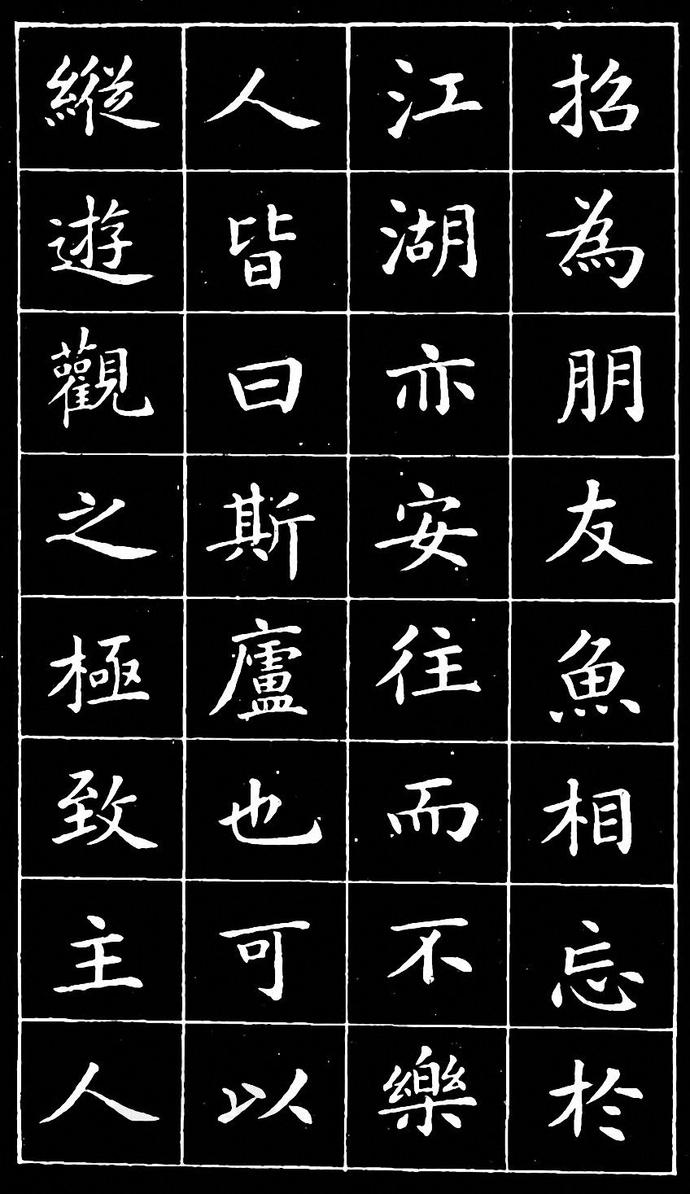 招為朋友魚相忘於
江湖亦安往而不樂
人皆曰斯廬也可以
縱遊觀之極致主人